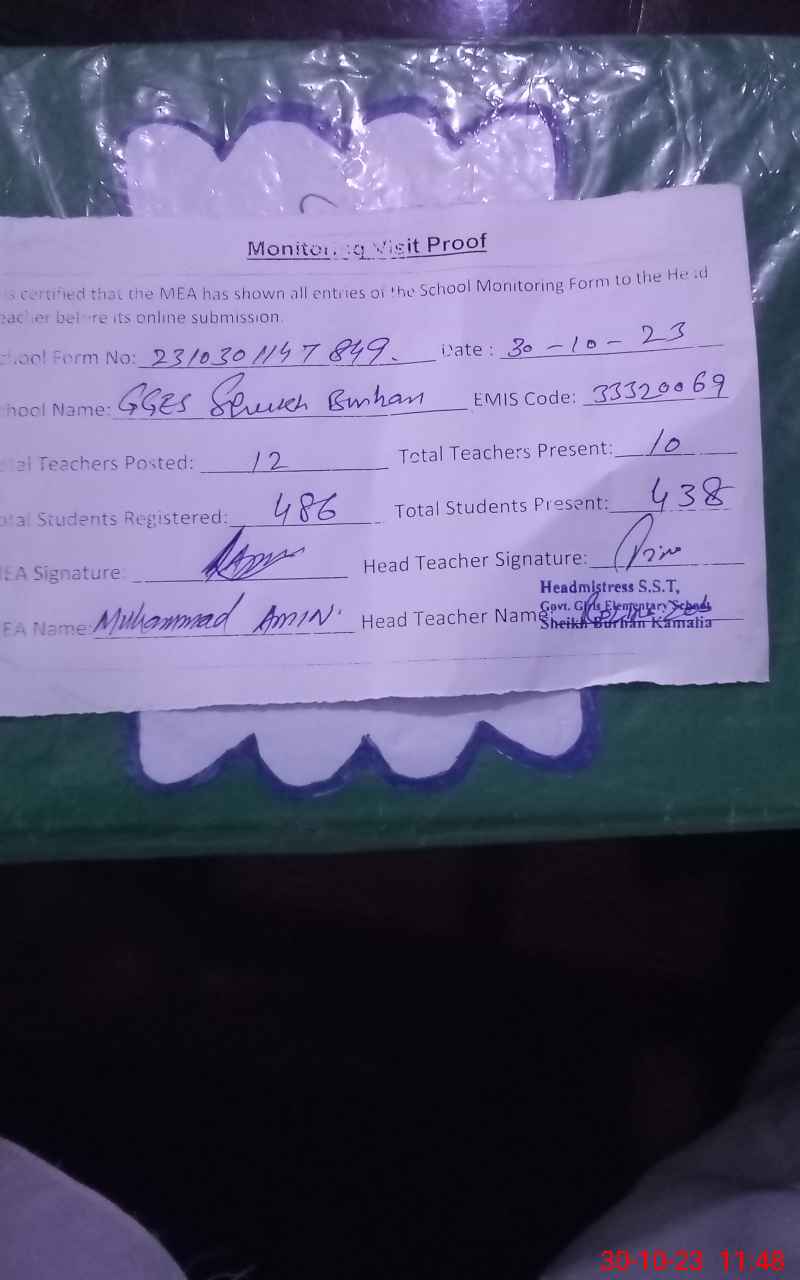 Monitoring Visit Proof
is certified that the MEA has shown all entries of the School Monitoring Form to the Head
eacher before its online submission.
chool Form No: 2310301147849. Date : 30-10-23
hool Name: GGES Sheikh Burhan EMIS Code: 33320069
tal Teachers Posted: 12 Total Teachers Present: 10
otal Students Registered: 486 Total Students Present: 438
EA Signature: Head Teacher Signature:
Headmistress S.S.T,
EA Name: Muhammad AMIN. Head Teacher Name
Govt. Girls Elementary School
Sheikh Burhan Kamalia
30-10-23 11:48